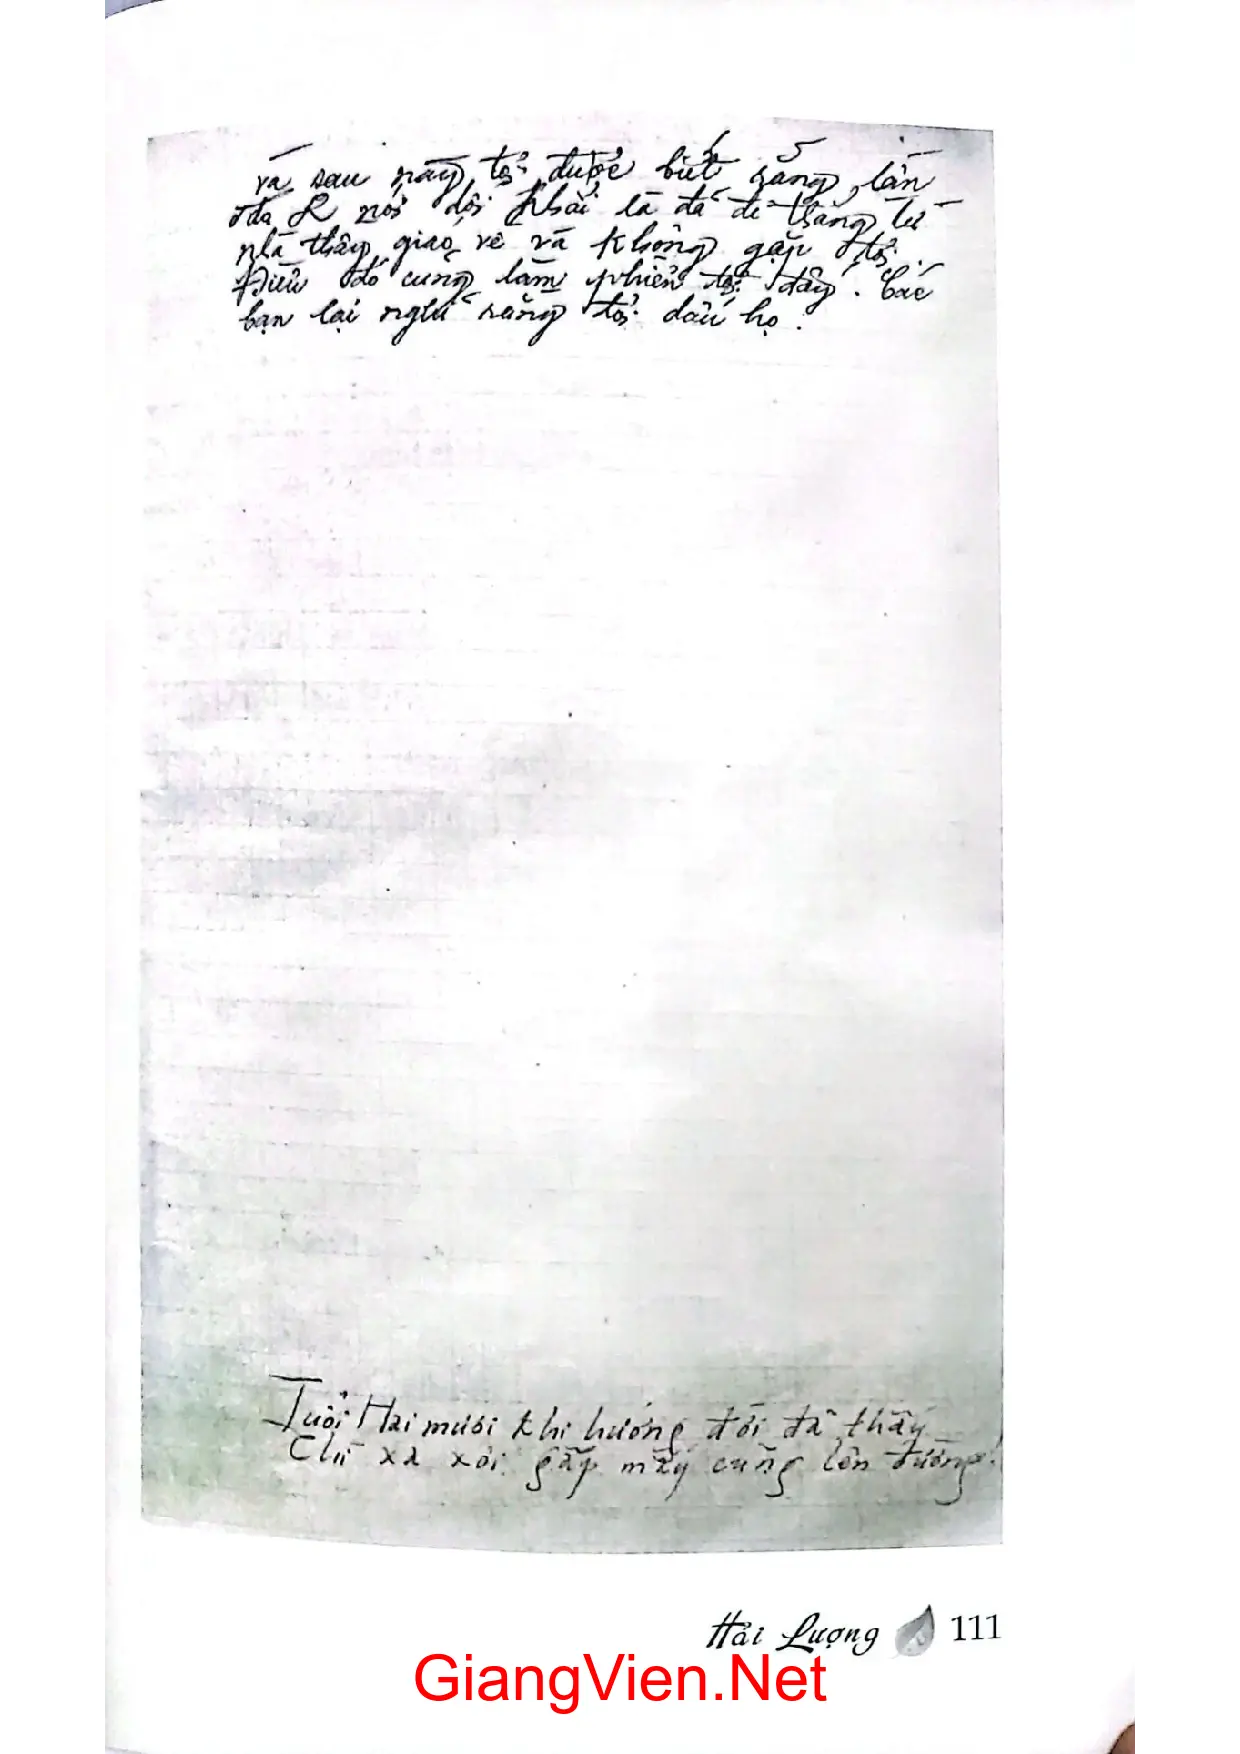 và sau này, tôi được biết rằng, lần
đó R nói dối. Khải là đã đi thẳng từ
nhà thầy giáo về và không gặp tôi.
Điều đó cũng làm phiền tôi đấy. Các
bạn lại nghĩ rằng tôi dấu họ.
Tuổi Hai mươi khi hướng đời đã thấy
Thì xa xôi gấp mấy cũng lên đường!
Hải Lượng 111
GiangVien.Net